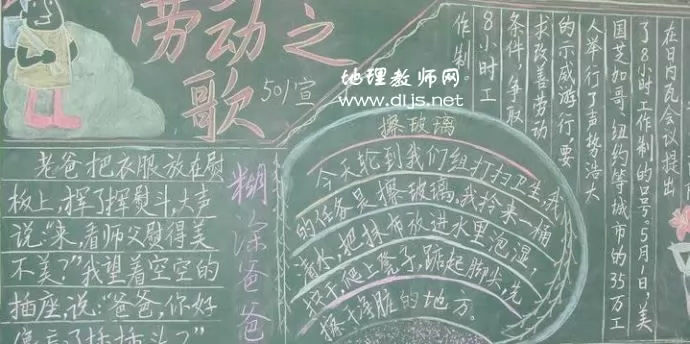 劳动之
歌 501宣
地理教师网
www.dljs.net
老爸把衣服放在熨
板上,挥了挥熨斗,大声
说:"来,看师父熨得美
不美?"我望着空空的
插座,说:"爸爸,你好
像忘了插插头
糊涂爸爸
擦玻璃
今天轮到我们组打扫卫生,我
的任务是擦玻璃。我拎来一桶
清水,把抹布放进水里泡湿,
拧干,爬上凳子,踮起脚尖,先
擦干净脏的地方。
在日内瓦会议提出
了8小时工作制的口号。5月1日,美
国芝加哥、纽约等城市的35万工
人举行了声势浩大
的示威游行,要
求改善劳动
条件,争取
8小时工
作制。